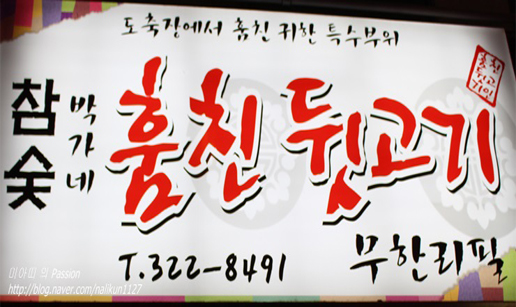 도축장에서 훔친 귀한 특수부위
참숯
박가네
훔친 뒷고기
훔친
뒷고기
T.322-8491
무한리필
Passion
http://blog.naver.com/nalikun1127